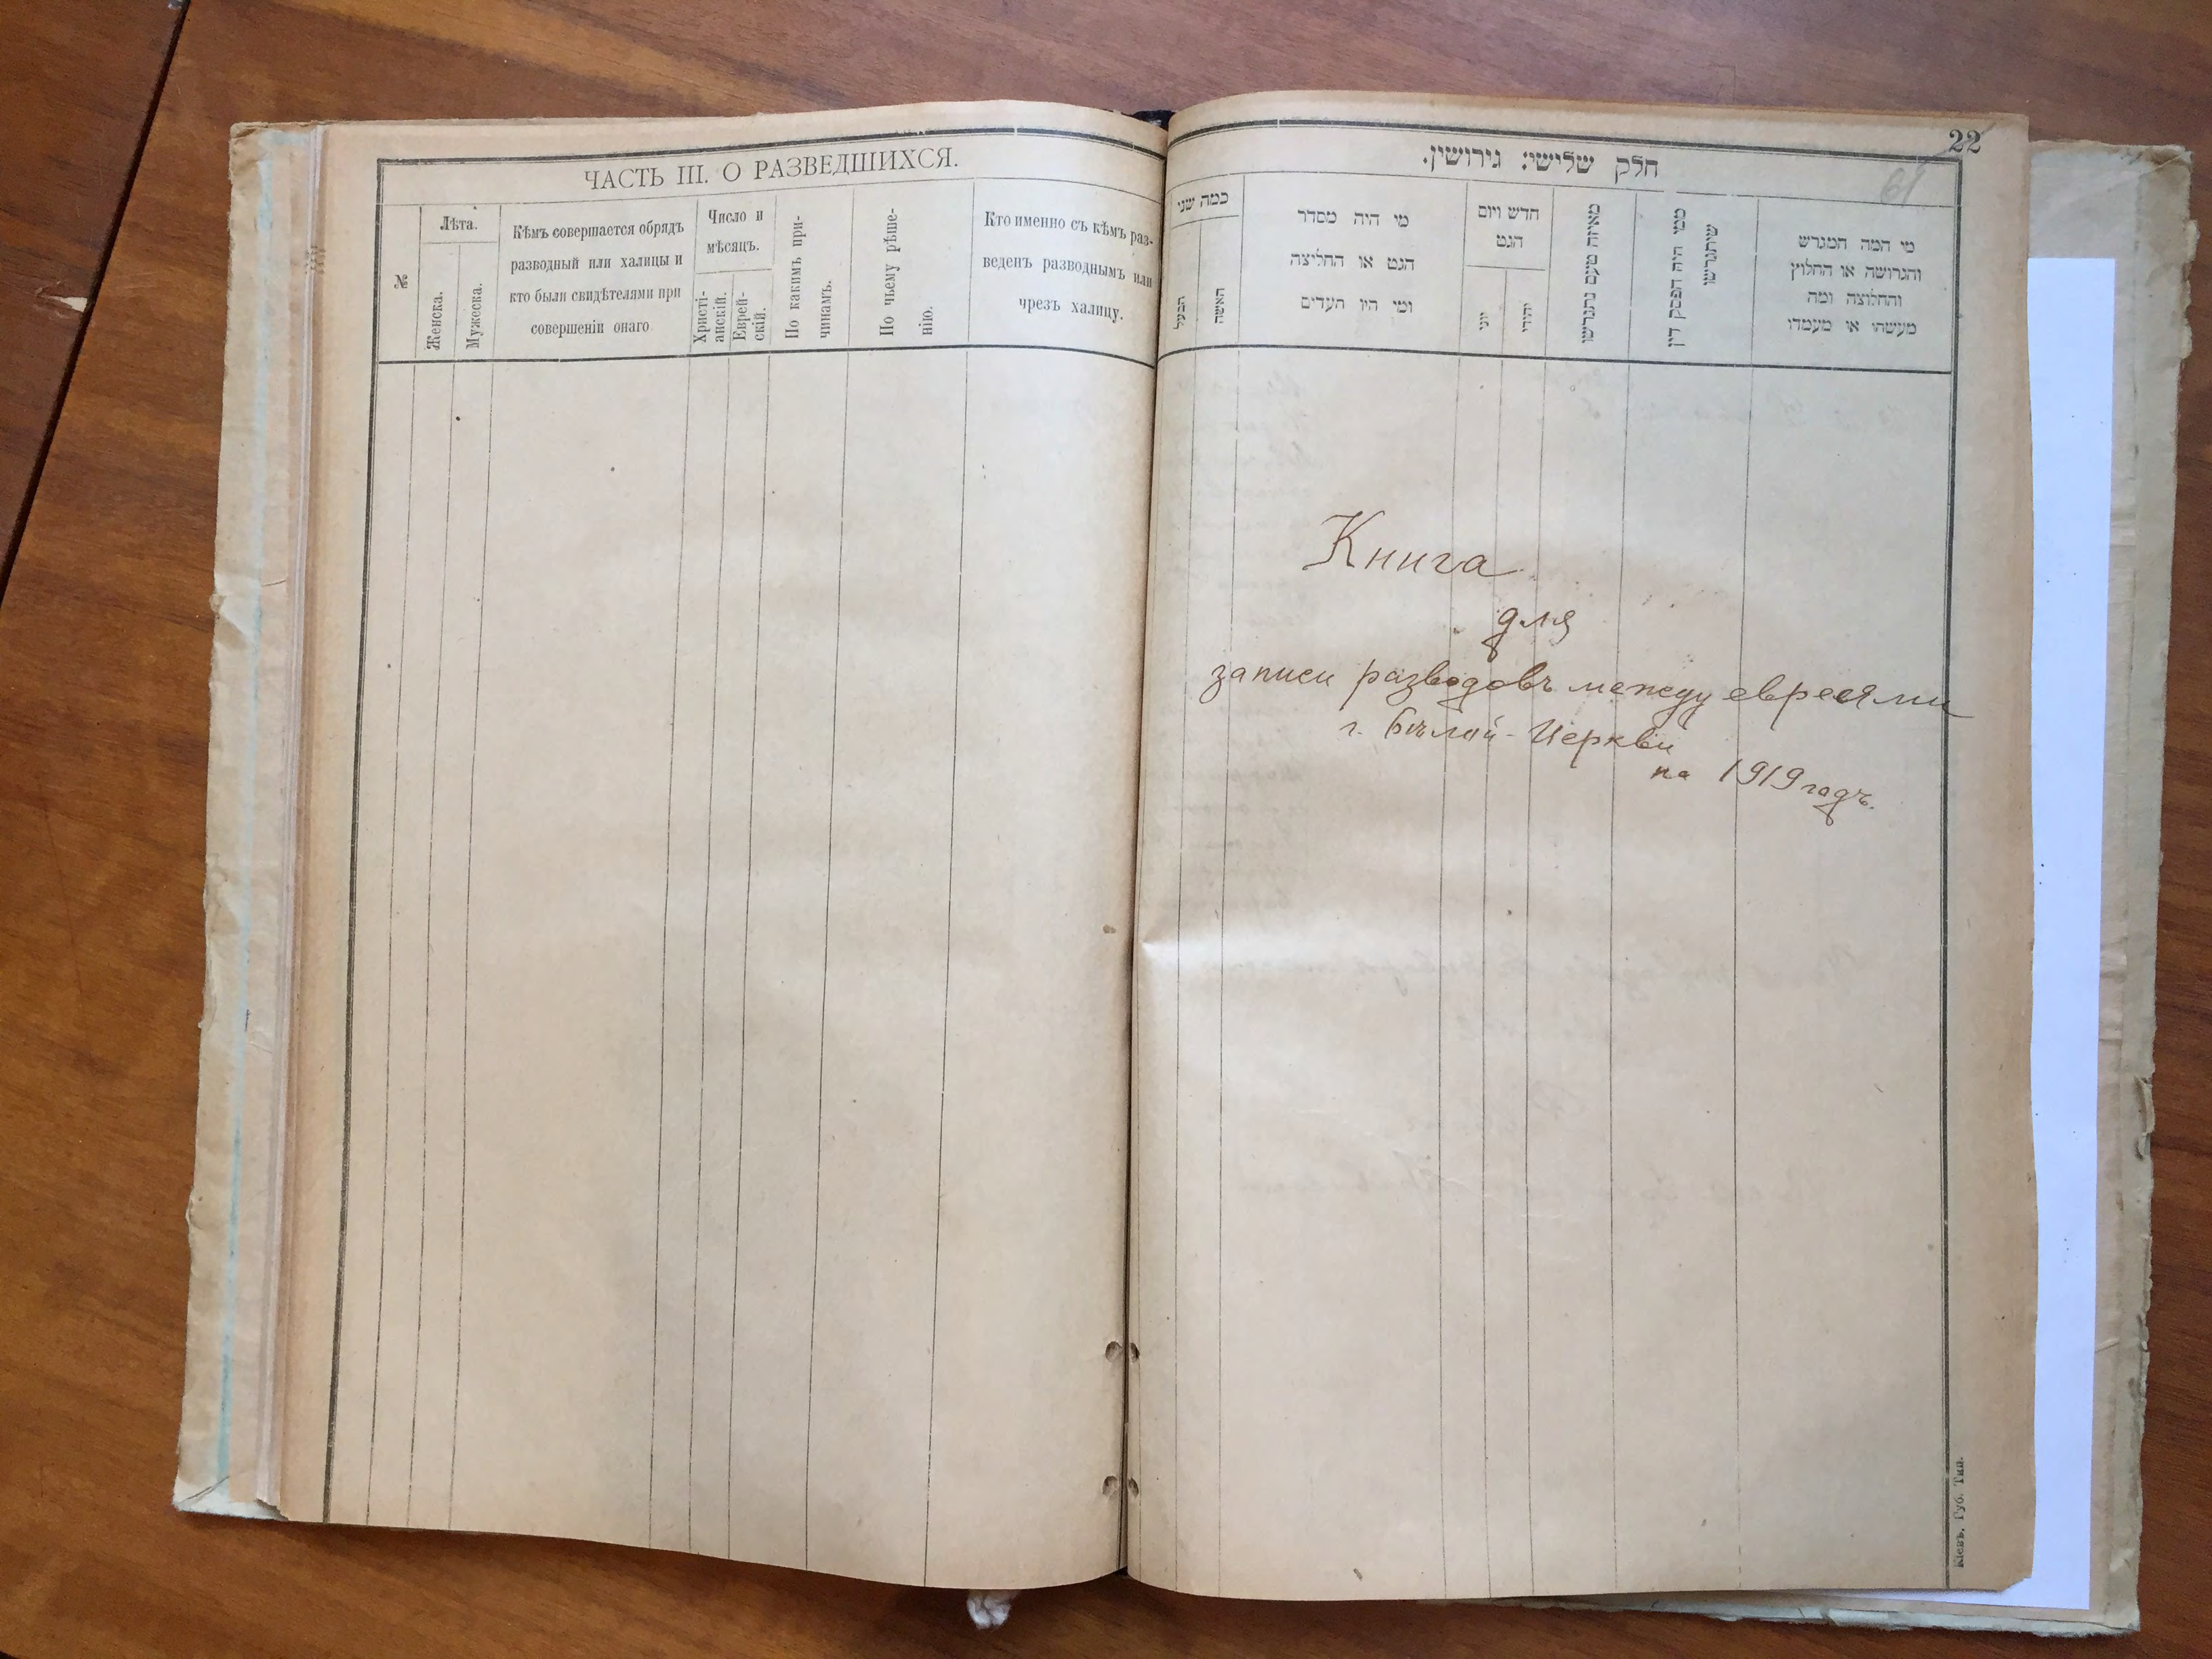 ЧАСТЬ III. О РАЗВЕДШИХСЯ.
№
Лѣта.
Женска.
Мужеска.
Кѣмъ совершается обрядъ
разводный или халицы и
кто были свидѣтелями при
совершеніи онаго
Число и
мѣсяцъ.
Христі-
анскій.
Еврей-
скій.
По какимъ при-
чинамъ.
По чьему рѣше-
нію.
Кто именно съ кѣмъ раз-
веденъ разводнымъ или
чрезъ халицу.
22
61
חלק שלישי: גירושין.
כמה שני
הבעל
האישה
מי היה מסדר
הגט או החליצה
ומי היו העדים
חדש ויום
הגט
יוני
יהודי
מאיזה טעם נתגרשו
ממי היה הפסק דין
שיתגרשו
מי המה המגרש
והגרושה או החלוץ
והחלוצה ומה
מעשהו או מעמדו
Книга
для
записи разводовъ между евреями
г. Бѣлой-Церкви
на 1919 годъ.
Кіевъ. Губ. Тип.